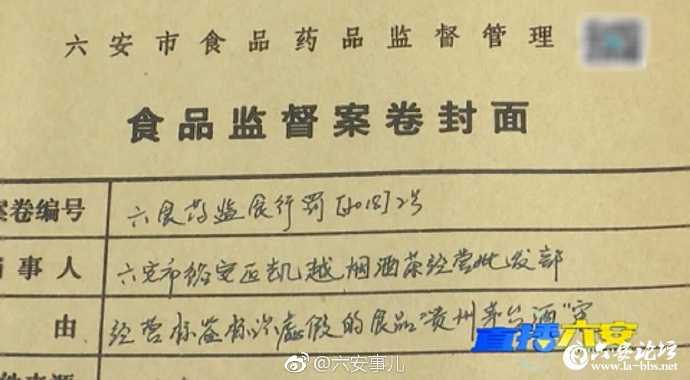 六安市食品药品监督管理
食品监督案卷封面
案卷编号 六食药监食行罚[2018]2号
当事人 六安市裕安区凯越烟酒茶经营批发部
由 经营标签标识虚假的食品“贵州茅台酒”案
直播六安
@六安事儿
六安论坛
www.la-bbs.net